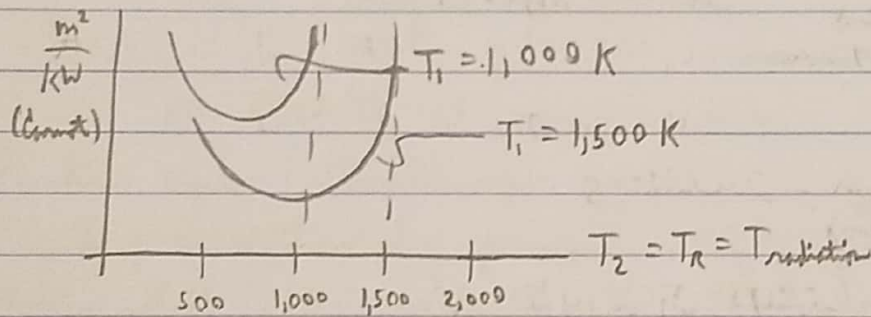 m²
kW
T₁ = 1,000 K
T₁ = 1,500 K
T₂ = T_R = T_radiation
500 1,000 1,500 2,000